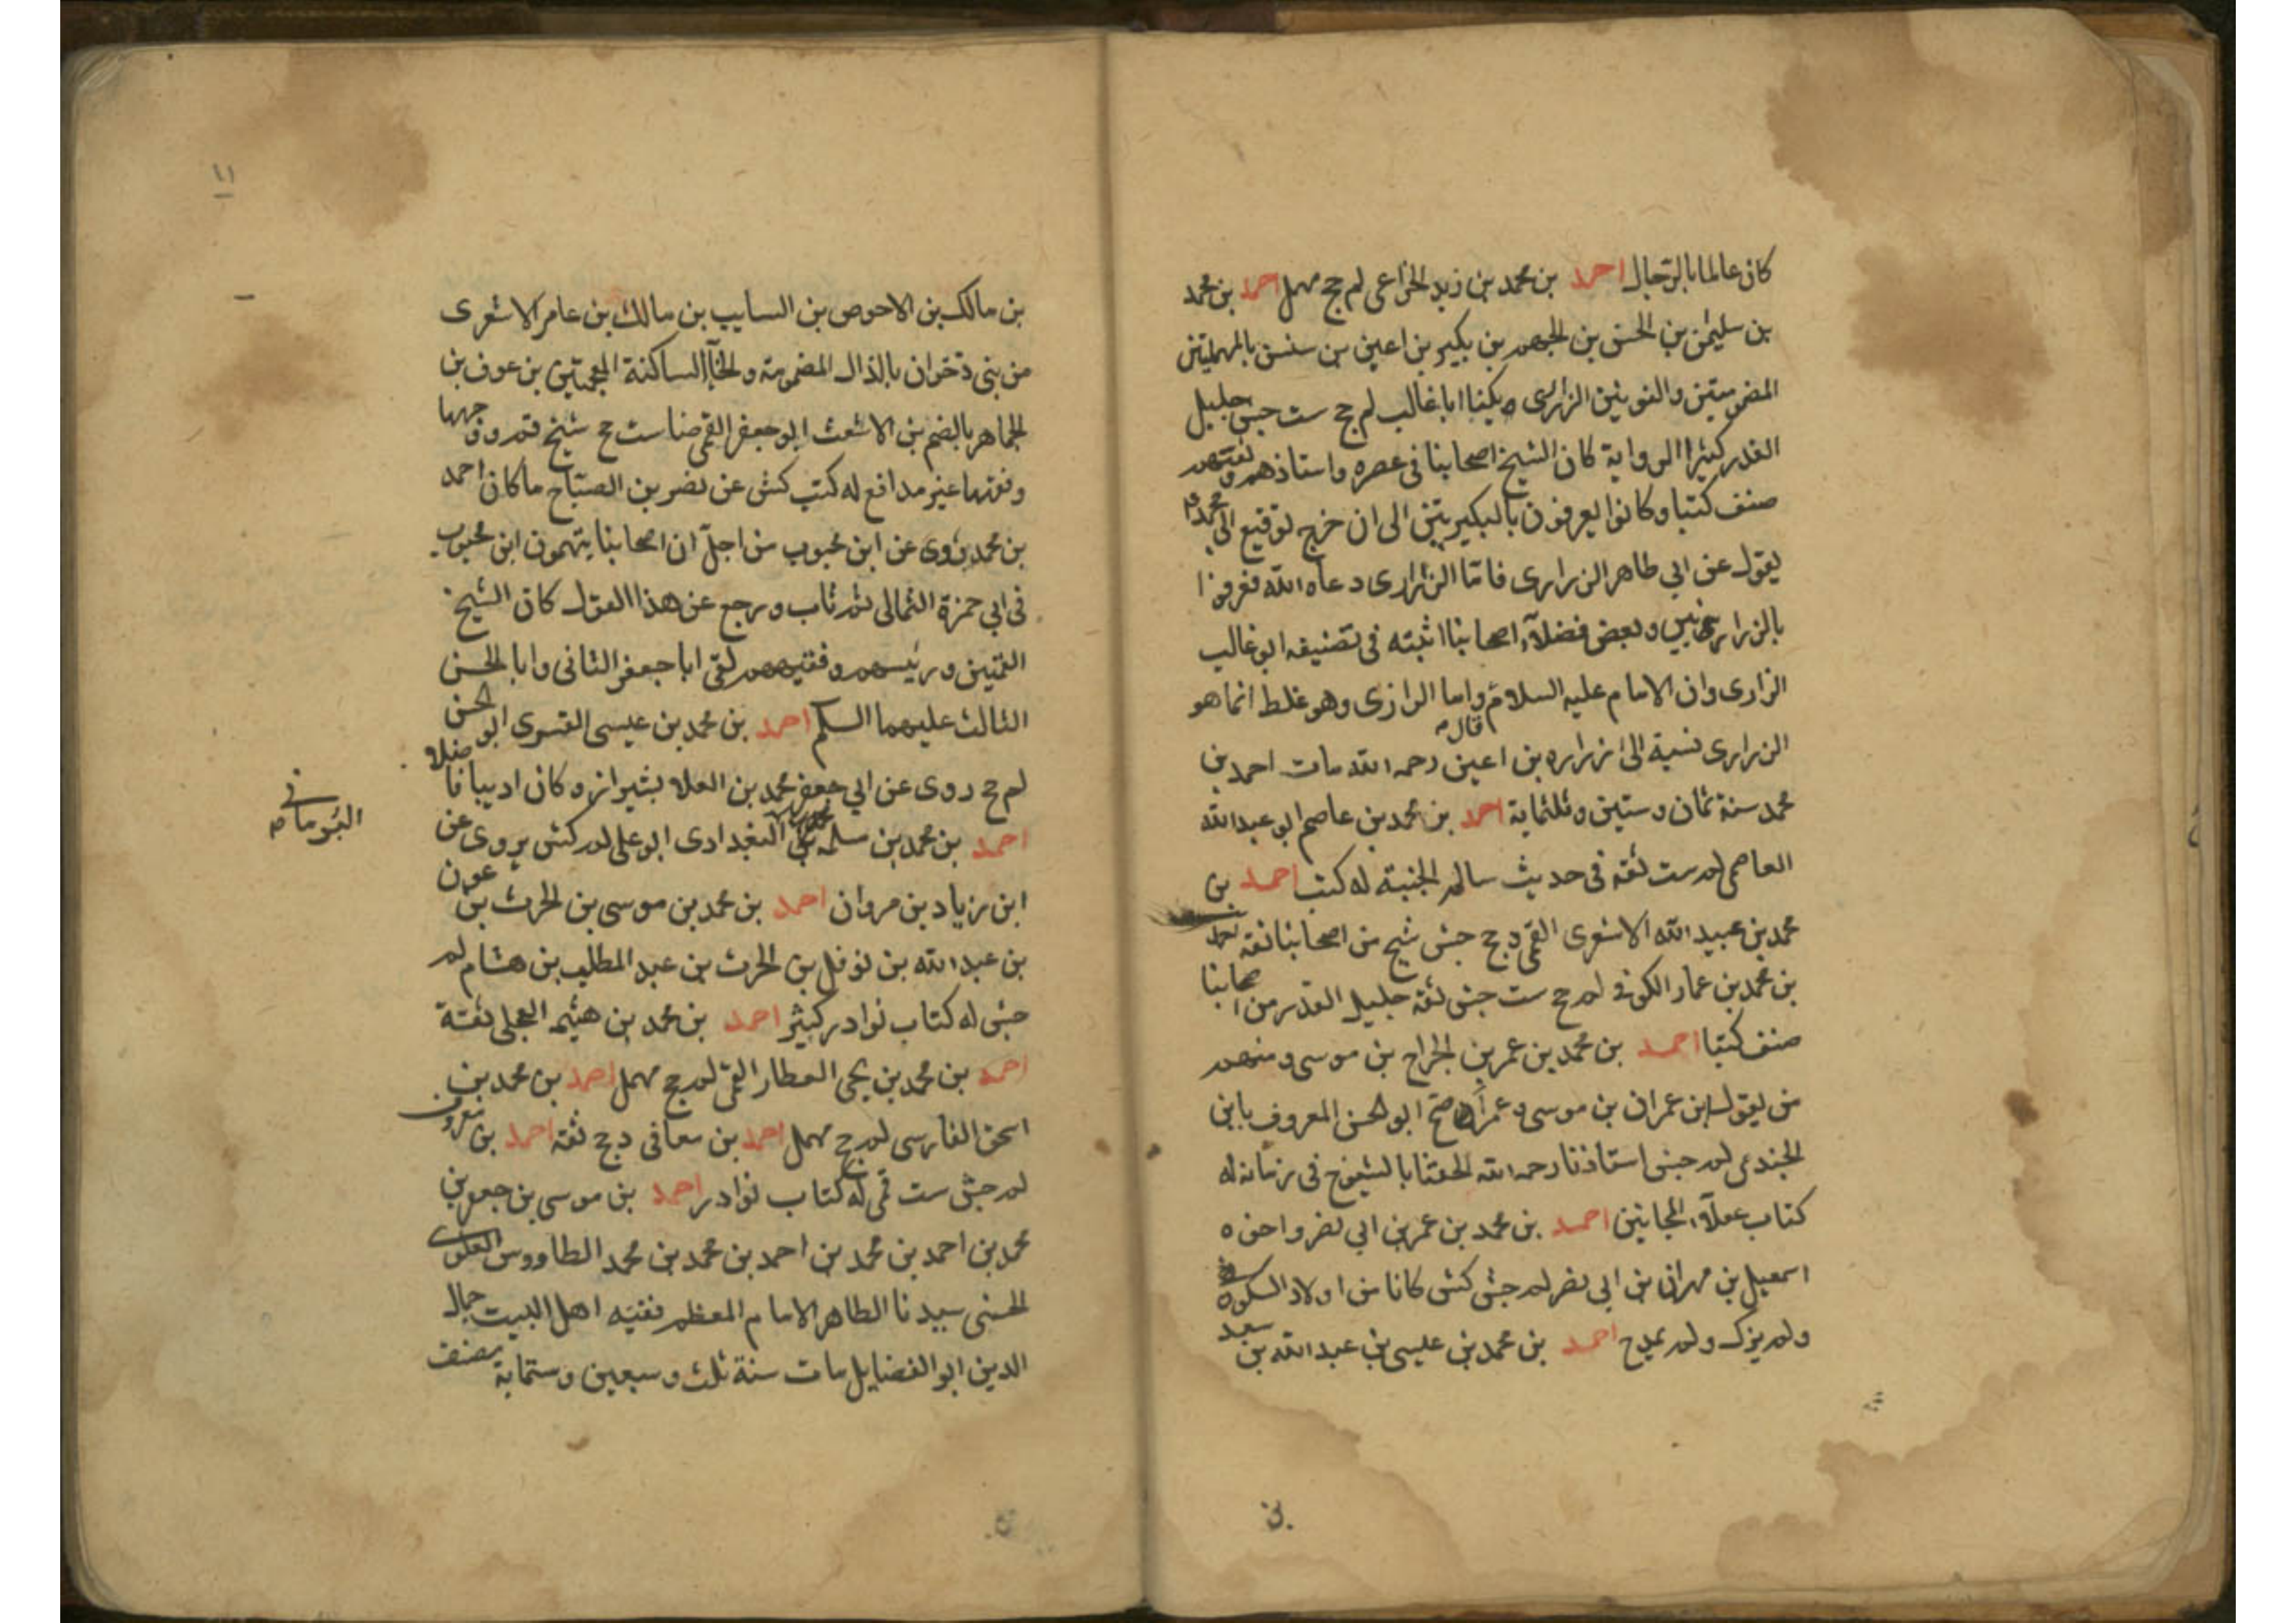 كان عالما بالرجال احمد بن محمد بن زيد الخزاعى لم جخ مهمل احمد بن محمد
بن سليمن بن الحسن بن الجهم بن بكير بن اعين بن سنسن بالمهملتين
المضمومتين والنونين الزرارى ويكنا ابا غالب لم جخ ست جش جليل
القدر كثير الرواية كان الشيخ اصحابنا فى عصره واستاذهم وثقتهم
صنف كتبا وكانوا يعرفون بالبكيريين الى ان خرج توقيع الى محمد
يقول عن ابي طاهر الزرارى فاما الزرارى دعاه الله فعرفوا
بالزراريين وبعض فضلآء اصحابنا اثبته فى تصنيفه ابو غالب
الرازى وان الامام عليه السلام قال واما الرازى وهو غلط انما هو
الزرارى نسبة الى زراره بن اعين رحمه الله مات احمد بن
محمد سنة ثمان وستين وثلثماية احمد بن محمد بن عاصم ابو عبد الله
العاصمى لم ست ثقة فى حديث سالم الجنبة له كتب احمد بن
محمد بن عبيد الله الاشعرى القمى دج جش شيخ من اصحابنا ثقة احمد
بن محمد بن عمار الكوفى لم جخ ست جش ثقة جليل القدر من اصحابنا
صنف كتبا احمد بن محمد بن عمر بن الجراح بن موسى ومنهم
من يقول ابن عمران بن موسى وعمران صح ابو الحسن المعروف بابن
الجندى لم جش استاذنا رحمه الله الحقنا بالشيوخ فى زمانه له
كتاب عقلآء المجانين احمد بن محمد بن عمر بن ابي نصر واخوه
اسمعيل بن مهران بن ابي نصر لم جش كش كانا من اولاد السكونى
ولم يزك ولم يمدح احمد بن محمد بن عيسى بن عبد الله بن سعد
بن
١١
بن مالك بن الاحوص بن السايب بن مالك بن عامر الاشعرى
من بنى ذخران بالذال المضمومة والخآء الساكنة المعجمتين بن عوف بن
الجماهر بالضم بن الاشعث ابو جعفر القمى ضا ست جخ شيخ قم ووجهها
وفقيهها غير مدافع له كتب كش عن نصر بن الصباح ما كان احمد
بن محمد يروى عن ابن محبوب من اجل ان اصحابنا يتهمون ابن محبوب
فى ابي حمزة الثمالى ثم تاب ورجع عن هذا القول كان الشيخ
القميين ورئيسهم وفقيههم لقى ابا جعفر الثانى وابا الحسن
الثالث عليهما السلم احمد بن محمد بن عيسى القسرى ابو الحسن
لم جخ روى عن ابي جعفر محمد بن العلا بشيراز وكان اديبا فاضلا
احمد بن محمد بن سلمه البغدادى ابو على لم كش يروى عن
ابن زياد بن مروان احمد بن محمد بن موسى بن الحرث بن عون
بن عبد الله بن نوفل بن الحرث بن عبد المطلب بن هشام لم
جش له كتاب نوادر كبير احمد بن محمد بن هيثم العجلى ثقة
احمد بن محمد بن يحى العطار القمى لم جخ مهمل احمد بن محمد بن
اسحق الفارسى لم جخ مهمل احمد بن معافى دج ثقة احمد بن معروف
لم جش ست قمى له كتاب نوادر احمد بن موسى بن جعفر بن
محمد بن احمد بن محمد بن احمد بن محمد بن محمد الطاووس العلوى
الحسنى سيدنا الطاهر الامام المعظم فقيه اهل البيت جمال
الدين ابو الفضايل مات سنة ثلث وسبعين وستماية مصنف